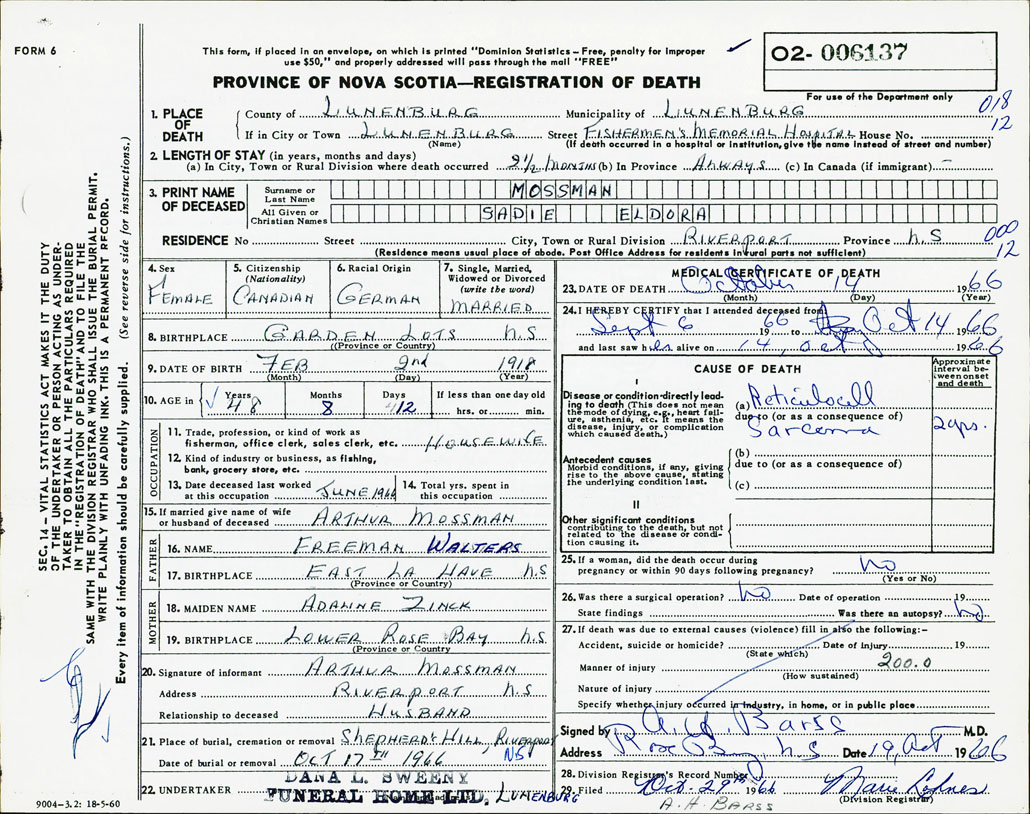 FORM 6
This form, if placed in an envelope, on which is printed "Dominion Statistics – Free, penalty for improper
use $50," and properly addressed will pass through the mail "FREE"
02- 006137
PROVINCE OF NOVA SCOTIA—REGISTRATION OF DEATH
For use of the Department only
018
12
1. PLACE OF DEATH
County of LUNENBURG Municipality of LUNENBURG
If in City or Town LUNENBURG Street FISHERMEN'S MEMORIAL HOSPITAL House No.
(Name) (If death occurred in a hospital or institution, give the name instead of street and number)
2. LENGTH OF STAY (in years, months and days)
(a) In City, Town or Rural Division where death occurred 2½ MONTHS (b) In Province ALWAYS (c) In Canada (if immigrant) —
3. PRINT NAME OF DECEASED
Surname or Last Name MOSSMAN
All Given or Christian Names SADIE ELDORA
000
12
RESIDENCE No Street City, Town or Rural Division RIVERPORT Province N.S
(Residence means usual place of abode. Post Office Address for residents in rural parts not sufficient)
4. Sex FEMALE
5. Citizenship (Nationality) CANADIAN
6. Racial Origin GERMAN
7. Single, Married, Widowed or Divorced (write the word) MARRIED
8. BIRTHPLACE GARDEN LOTS N.S
(Province or Country)
9. DATE OF BIRTH FEB 2nd 1918
(Month) (Day) (Year)
10. AGE in Years 48 Months 8 Days 12 If less than one day old hrs. or min.
OCCUPATION
11. Trade, profession, or kind of work as
fisherman, office clerk, sales clerk, etc. HOUSEWIFE
12. Kind of industry or business, as fishing,
bank, grocery store, etc.
13. Date deceased last worked
at this occupation JUNE 1966
14. Total yrs. spent in
this occupation
15. If married give name of wife
or husband of deceased ARTHUR MOSSMAN
FATHER
16. NAME FREEMAN WALTERS
17. BIRTHPLACE EAST LA HAVE N.S
(Province or Country)
MOTHER
18. MAIDEN NAME ADALINE ZINCK
19. BIRTHPLACE LOWER ROSE BAY N.S
(Province or Country)
20. Signature of informant ARTHUR MOSSMAN
Address RIVERPORT N.S
Relationship to deceased HUSBAND
21. Place of burial, cremation or removal SHEPHERDS HILL, RIVERPORT
NS
Date of burial or removal OCT 17TH 1966
22. UNDERTAKER DANA L. SWEENY
FUNERAL HOME LTD. LUNENBURG
MEDICAL CERTIFICATE OF DEATH
23. DATE OF DEATH October 14 1966
(Month) (Day) (Year)
24. I HEREBY CERTIFY that I attended deceased from
Sept 6 1966 to Oct 14 1966
and last saw her alive on 14, Oct 1966
CAUSE OF DEATH
Approximate interval between onset and death
I
Disease or condition directly leading to death (This does not mean the mode of dying, e.g., heart failure, asthenia, etc. It means the disease, injury, or complication which caused death.)
(a) Reticulocell
due to (or as a consequence of)
Sarcoma
2 yrs.
Antecedent causes
Morbid conditions, if any, giving rise to the above cause, stating the underlying condition last.
(b)
due to (or as a consequence of)
(c)
II
Other significant conditions
contributing to the death, but not related to the disease or condition causing it.
25. If a woman, did the death occur during
pregnancy or within 90 days following pregnancy? No
(Yes or No)
26. Was there a surgical operation? No Date of operation 19
State findings Was there an autopsy? No
27. If death was due to external causes (violence) fill in also the following:-
Accident, suicide or homicide? Date of injury 19
(State which)
Manner of injury 200.0
(How sustained)
Nature of injury
Specify whether injury occurred in industry, in home, or in public place
Signed by A. H. Barss M.D.
Address Rose Bay, N.S Date 19, Oct 1966
28. Division Registrar's Record Number
29. Filed Oct. 29th 1966
(Division Registrar)
A.H. BARSS
SEC. 14 – VITAL STATISTICS ACT MAKES IT THE DUTY
OF THE UNDERTAKER OR PERSON ACTING AS UNDER-
TAKER TO OBTAIN ALL THE PARTICULARS REQUIRED
IN THE "REGISTRATION OF DEATH" AND TO FILE THE
SAME WITH THE DIVISION REGISTRAR WHO SHALL ISSUE THE BURIAL PERMIT.
WRITE PLAINLY WITH UNFADING INK. THIS IS A PERMANENT RECORD.
Every item of information should be carefully supplied. (See reverse side for instructions.)
9004–3.2: 18-5-60